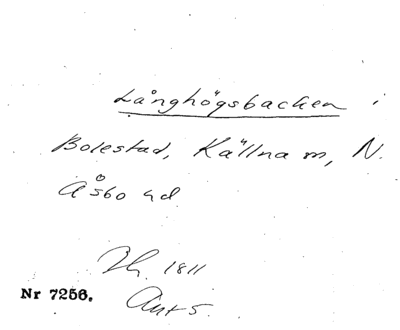 Långhögsbacken i
Bolestad, Källna m, N.
Åsbo hd
Th. 1811
Nr 7256. Ant 5.